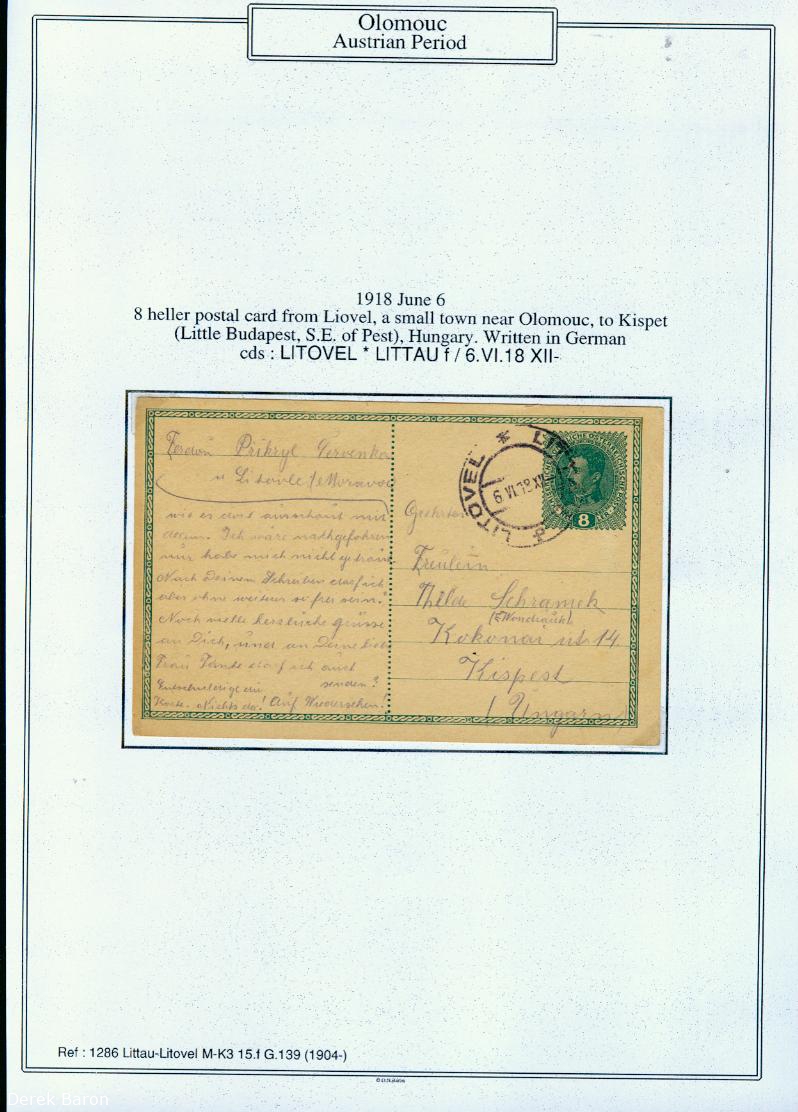 Olomouc
Austrian Period
1918 June 6
8 heller postal card from Liovel, a small town near Olomouc, to Kispet
(Little Budapest, S.E. of Pest), Hungary. Written in German
cds : LITOVEL * LITTAU f / 6.VI.18 XII-
Prikryl Červenka
u Litovle (Morava
wie es dort ausschaut mit
dazu. Ich wäre nachgefahren
nur habe mich nicht getraut
Nach Deinem Schreiben darf ich
aber ohne weiteres so frei sein.
Noch viele herzliche Grüsse
an Dich, und an Deine liebe
Frau Tante darf ich auch
senden?
Entschuldige die
Karte. Nichts da! Auf Wiedersehen!
LITOVEL * LITTAU
6 VI 18 XII
8
Geehrtes
Freulein
Thilde Schramek
Kokonai ut 14
Kispest
Ungarn
Ref : 1286 Littau-Litovel M-K3 15.f G.139 (1904-)
© D.N.Baron
Derek Baron